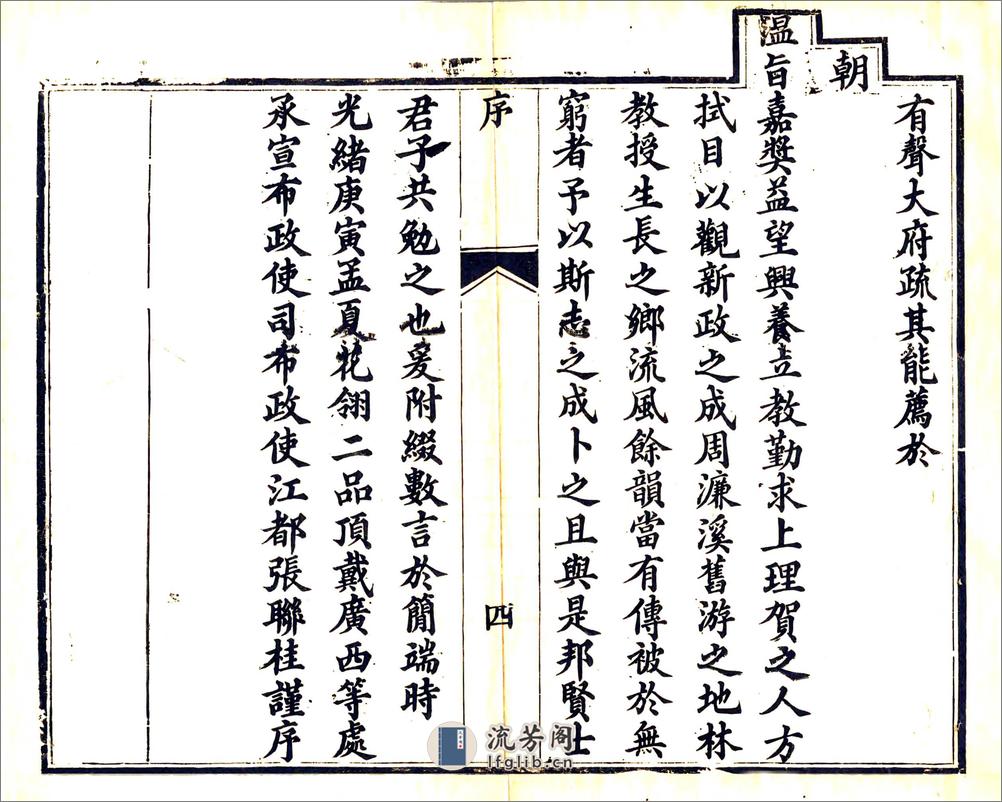 有聲大府疏其能薦於
朝
溫旨嘉獎益望興養立教勤求上理賀之人方
拭目以觀新政之成周濂溪舊游之地林
教授生長之鄉流風餘韻當有傳被於無
窮者予以斯志之成卜之且與是邦賢士
序
四
君子共勉之也爰附綴數言於簡端時
光緒庚寅孟夏花翎二品頂戴廣西等處
承宣布政使司布政使江都張聯桂謹序
流芳阁
lfglib.cn